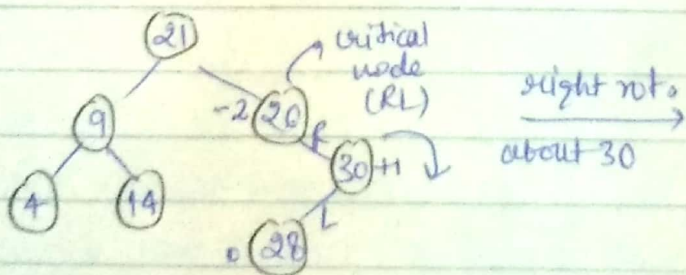 21
critical
node
(RL)
9
-2 26
right rot.
about 30
R
30 +1
4
14
L
0 28